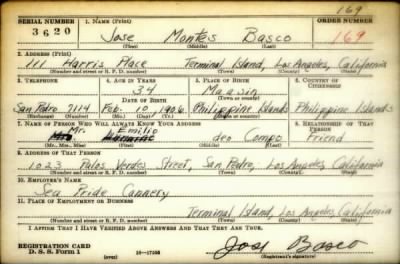 169
SERIAL NUMBER 1. NAME (Print) ORDER NUMBER
3620 Jose Montes Basco 169
(First) (Middle) (Last)
2. ADDRESS (Print)
111 Harris Place Terminal Island, Los Angeles, California
(Number and street or R. F. D. number) (Town) (County) (State)
3. TELEPHONE 4. AGE IN YEARS 5. PLACE OF BIRTH 6. COUNTRY OF CITIZENSHIP
34 Maasin
DATE OF BIRTH (Town or county)
San Pedro 7114 Feb. 10 1906 Philippine Islands Philippine Islands
(Exchange) (Number) (Mo.) (Day) (Yr.) (State or country)
7. NAME OF PERSON WHO WILL ALWAYS KNOW YOUR ADDRESS 8. RELATIONSHIP OF THAT PERSON
Mr. Emilio deo Campo Friend
(Mr., Mrs., Miss) (First) (Middle) (Last)
9. ADDRESS OF THAT PERSON
1023 Palos Verdes Street, San Pedro, Los Angeles, California
(Number and street or R. F. D. number) (Town) (County) (State)
10. EMPLOYER'S NAME
Sea Pride Cannery
11. PLACE OF EMPLOYMENT OR BUSINESS
Terminal Island, Los Angeles, California
(Number and street or R. F. D. number) (Town) (County) (State)
I AFFIRM THAT I HAVE VERIFIED ABOVE ANSWERS AND THAT THEY ARE TRUE.
REGISTRATION CARD
D. S. S. Form 1 16—17105 Jose Basco
(Registrant's signature)